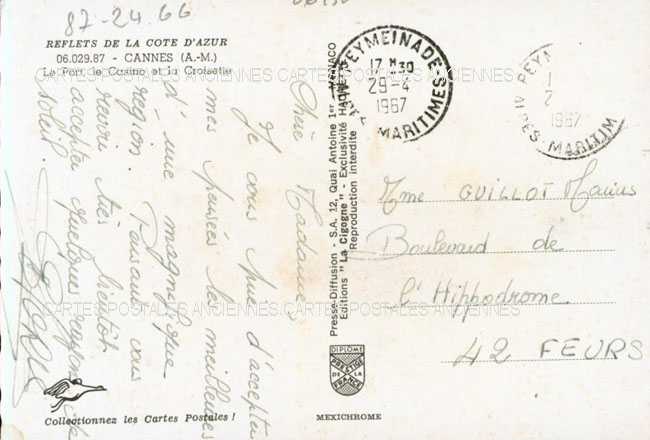 87-24.66
REFLETS DE LA COTE D'AZUR
06.029.87 - CANNES (A.-M.)
Le Port, le Casino et la Croisette
CARTES POSTALES ANCIENNES CARTES POSTALES ANCIENNES
Chère Madame,
Je vous prie d'accepter
mes pensées les meilleures
d'une magnifique
région. Pensant vous
revoir très bientôt
acceptez quelques rayons de
soleil.
Collectionnez les Cartes Postales !
Presse-Diffusion - S.A. 12, Quai Antoine 1er - MONACO
Editions "La Cigogne" - Exclusivité HACHETTE
Reproduction interdite
DIPLOME
PRESTIGE
DE LA
FRANCE
MEXICHROME
PEYMEINADE
17 H 30
29-4
1967
MARITIMES
PEYM
1967
MARITIM
Mme GUILLOT Marius
Boulevard de
l'Hippodrome
42 FEURS